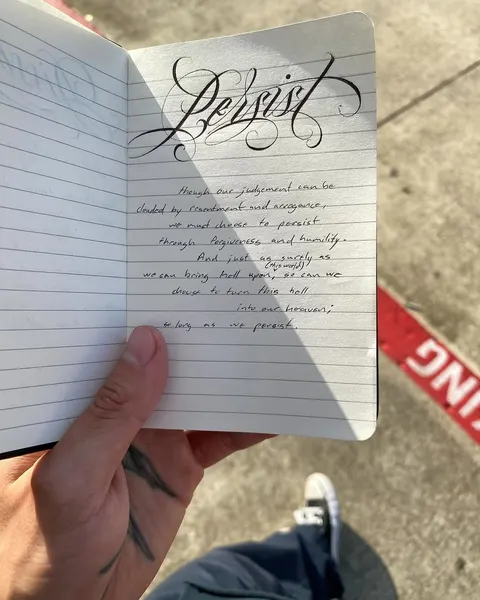 Persist
though our judgement can be
clouded by resentment and arrogance,
we must choose to persist
through forgiveness and humility.
And just as surely as
(this world)
we can bring hell upon, so can we
choose to turn this hell
into our heaven;
so long as we persist.
KING